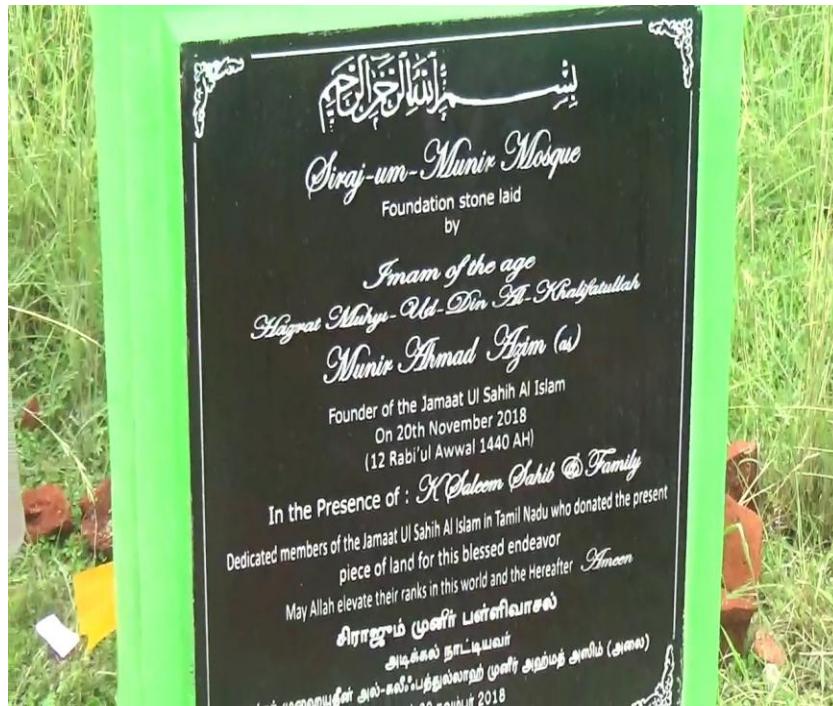 بِسْمِ اللهِ الرَّحْمٰنِ الرَّحِيْمِ
Siraj-um-Munir Mosque
Foundation stone laid
by
Imam of the age
Hazrat Muhyi-Ud-Din Al-Khalifatullah
Munir Ahmad Azim (as)
Founder of the Jamaat Ul Sahih Al Islam
On 20th November 2018
(12 Rabi'ul Awwal 1440 AH)
In the Presence of : K Saleem Sahib & Family
Dedicated members of the Jamaat Ul Sahih Al Islam in Tamil Nadu who donated the present
piece of land for this blessed endeavor
May Allah elevate their ranks in this world and the Hereafter Ameen
சிராஜும் முனீர் பள்ளிவாசல்
அடிக்கல் நாட்டியவர்
அல்-கலீஃபத்துல்லாஹ் முனீர் அஹ்மத் அஸிம் (அலை)
நவம்பர் 2018